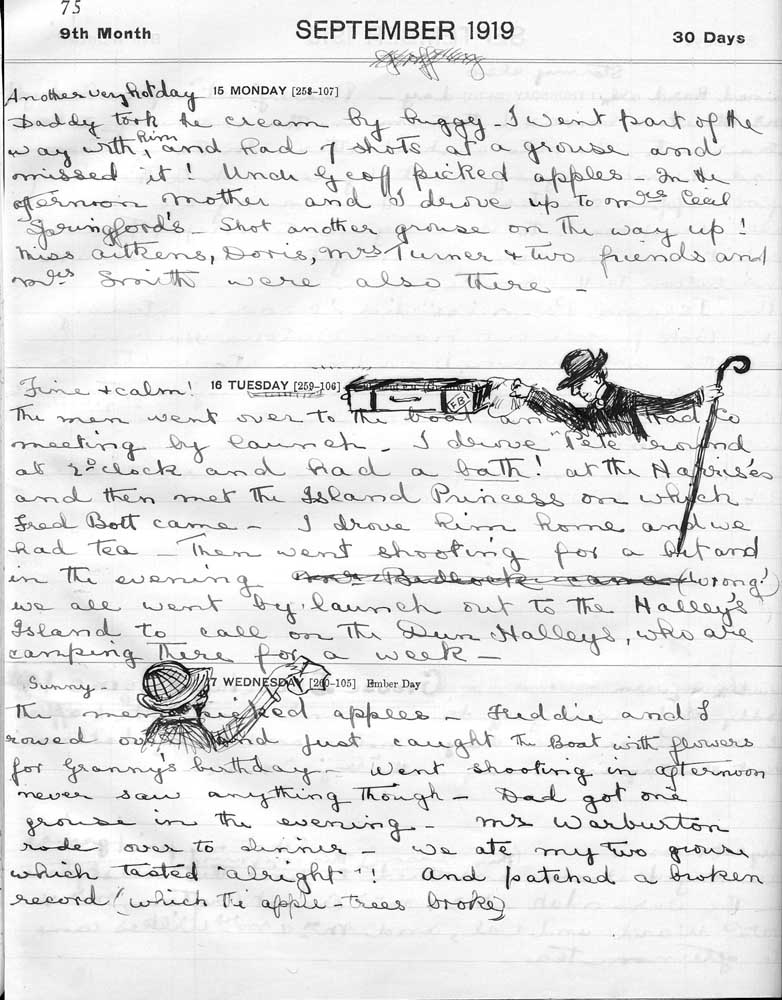 75
9th Month SEPTEMBER 1919 30 Days
Another very hot day 15 MONDAY [258-107]
Daddy took the cream by buggy - I went part of the
way with him, and had 7 shots at a grouse and
missed it! Uncle Geoff picked apples - In the
afternoon mother and I drove up to Mrs Cecil
Springford's - Shot another grouse on the way up!
Miss Aitkens, Doris, Mrs Turner + two friends and
Mrs Smith were also there -
Fine + calm! 16 TUESDAY [259-106]
The men went over to the boat and had Co
meeting by launch - I drove "Pete" round
at 2 o'clock and had a bath! at the Harris'es
and then met the Island Princess on which
Fred Bott came - I drove him home and we
had tea - Then went shooting for a bit and
in the evening Mrs came (wrong!)
we all went by launch out to the Halley's
Island to call on the Dun Halleys, who are
camping there for a week -
Sunny - 17 WEDNESDAY [260-105] Ember Day
The men picked apples - Freddie and I
rowed over and just caught the Boat with flowers
for Granny's birthday - Went shooting in afternoon
never saw anything though - Dad got one
grouse in the evening - Mr Warburton
rode over to dinner - we ate my two grouse
which tasted "alright"! And patched a broken
record (which the apple-trees broke)